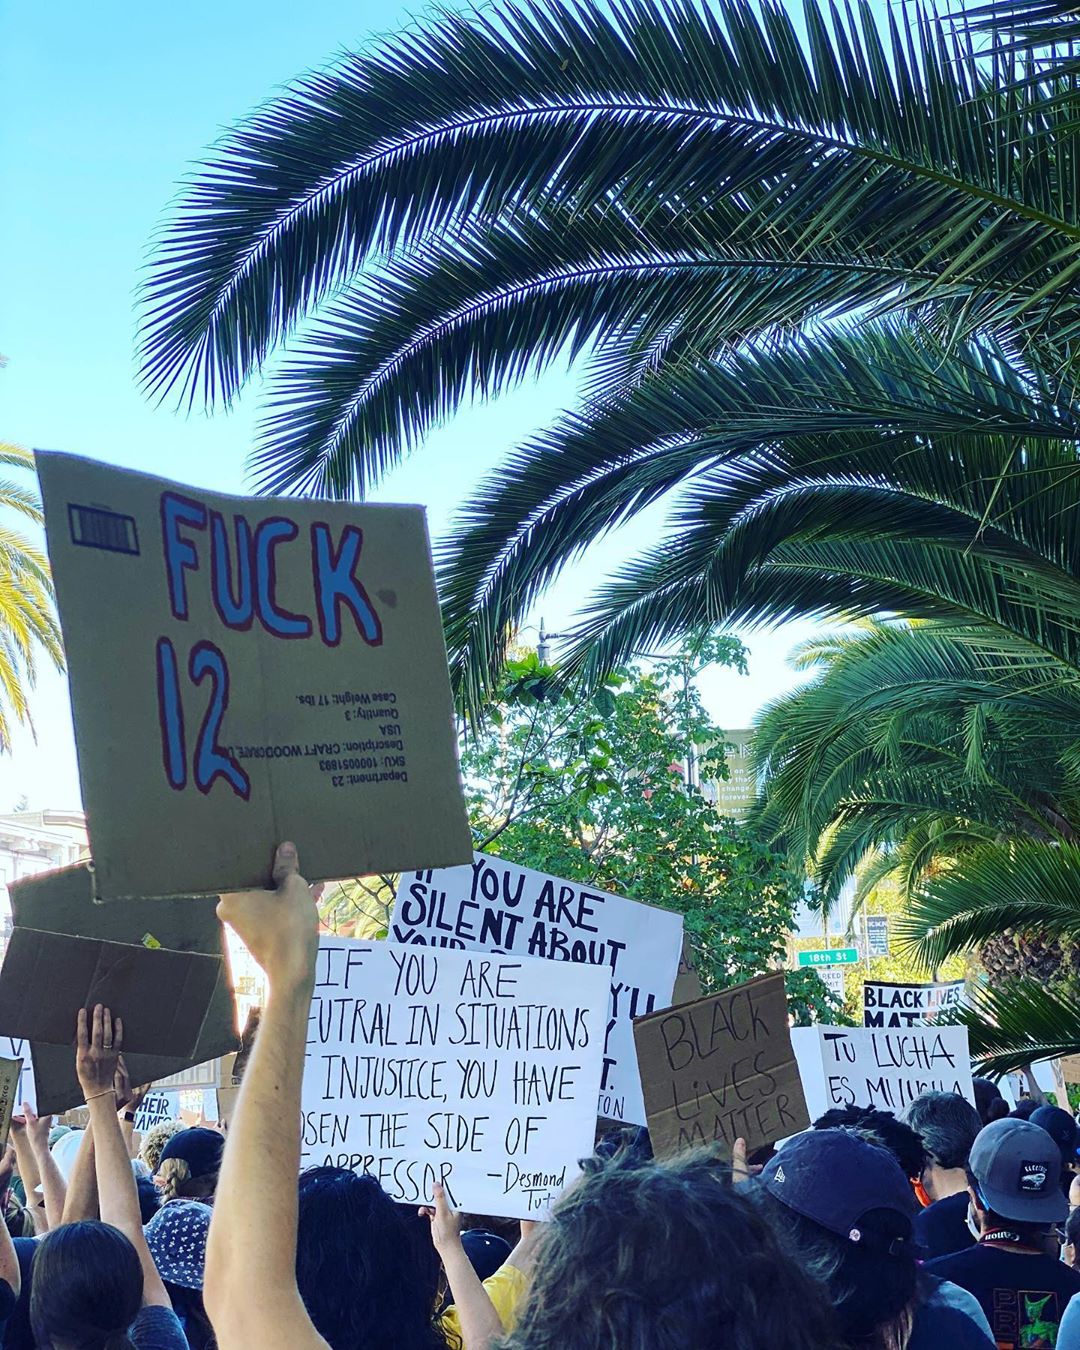 FUCK
12
Department: 23
SKU: 1000051893
Description: CRAFT WOODCRATE
USA
Quantity: 3
Case Weight: 17 lbs.
YOU ARE
SILENT ABOUT
IF YOU ARE
EUTRAL IN SITUATIONS
INJUSTICE, YOU HAVE
OSEN THE SIDE OF
OPPRESSOR. -Desmond
Tut
BLACK
LIVES
MATTER
18th St
BLACK LIVES
MAT
TU LUCHA
ES MI LUCHA
change
forever
HEIR
AMES
Canon